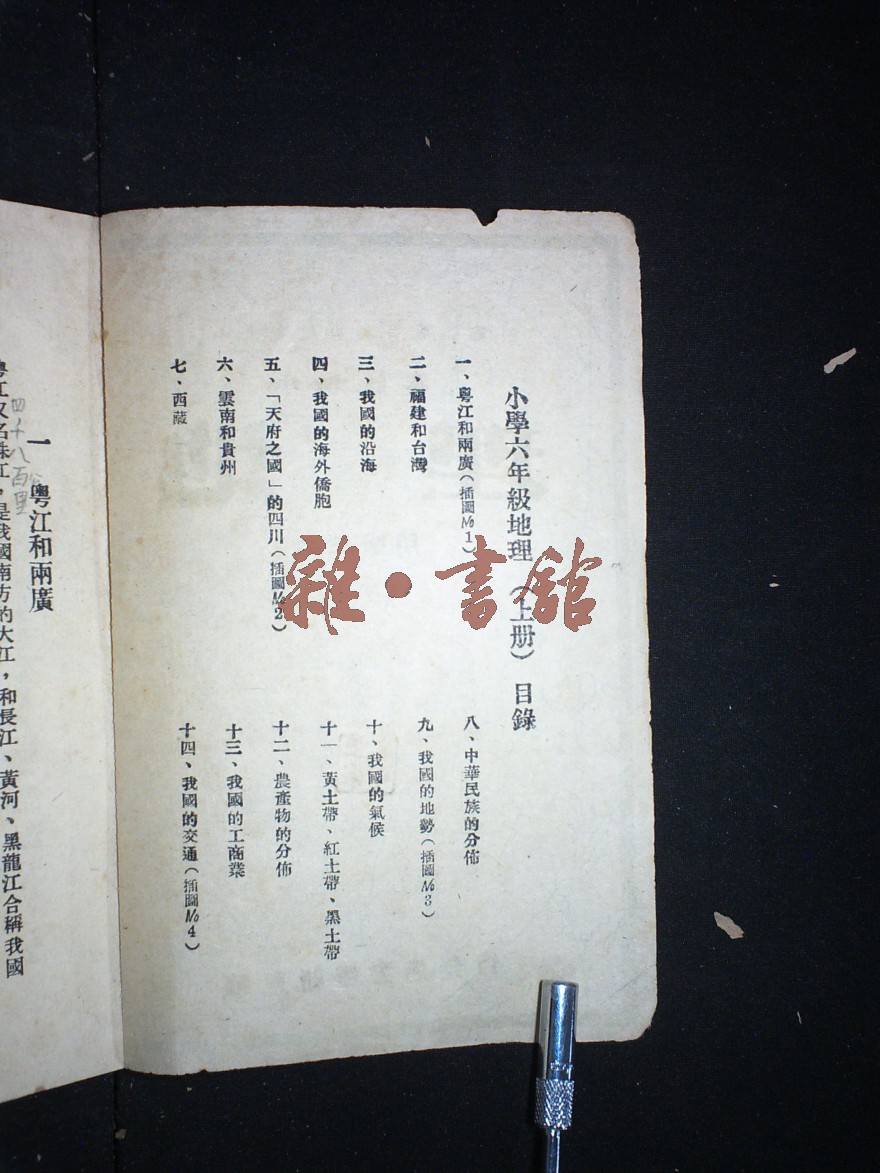 小學六年級地理（上册）目錄
一、粵江和兩廣（插圖№1）
二、福建和台灣
三、我國的沿海
四、我國的海外僑胞
五、「天府之國」的四川（插圖№2）
六、雲南和貴州
七、西藏
八、中華民族的分佈
九、我國的地勢（插圖№3）
十、我國的氣候
十一、黃土帶、紅土帶、黑土帶
十二、農產物的分佈
十三、我國的工商業
十四、我國的交通（插圖№4）
一 粵江和兩廣
四千八百公里
粵江又名珠江，是我國南方的大江，和長江、黃河、黑龍江合稱我國
雜·書館